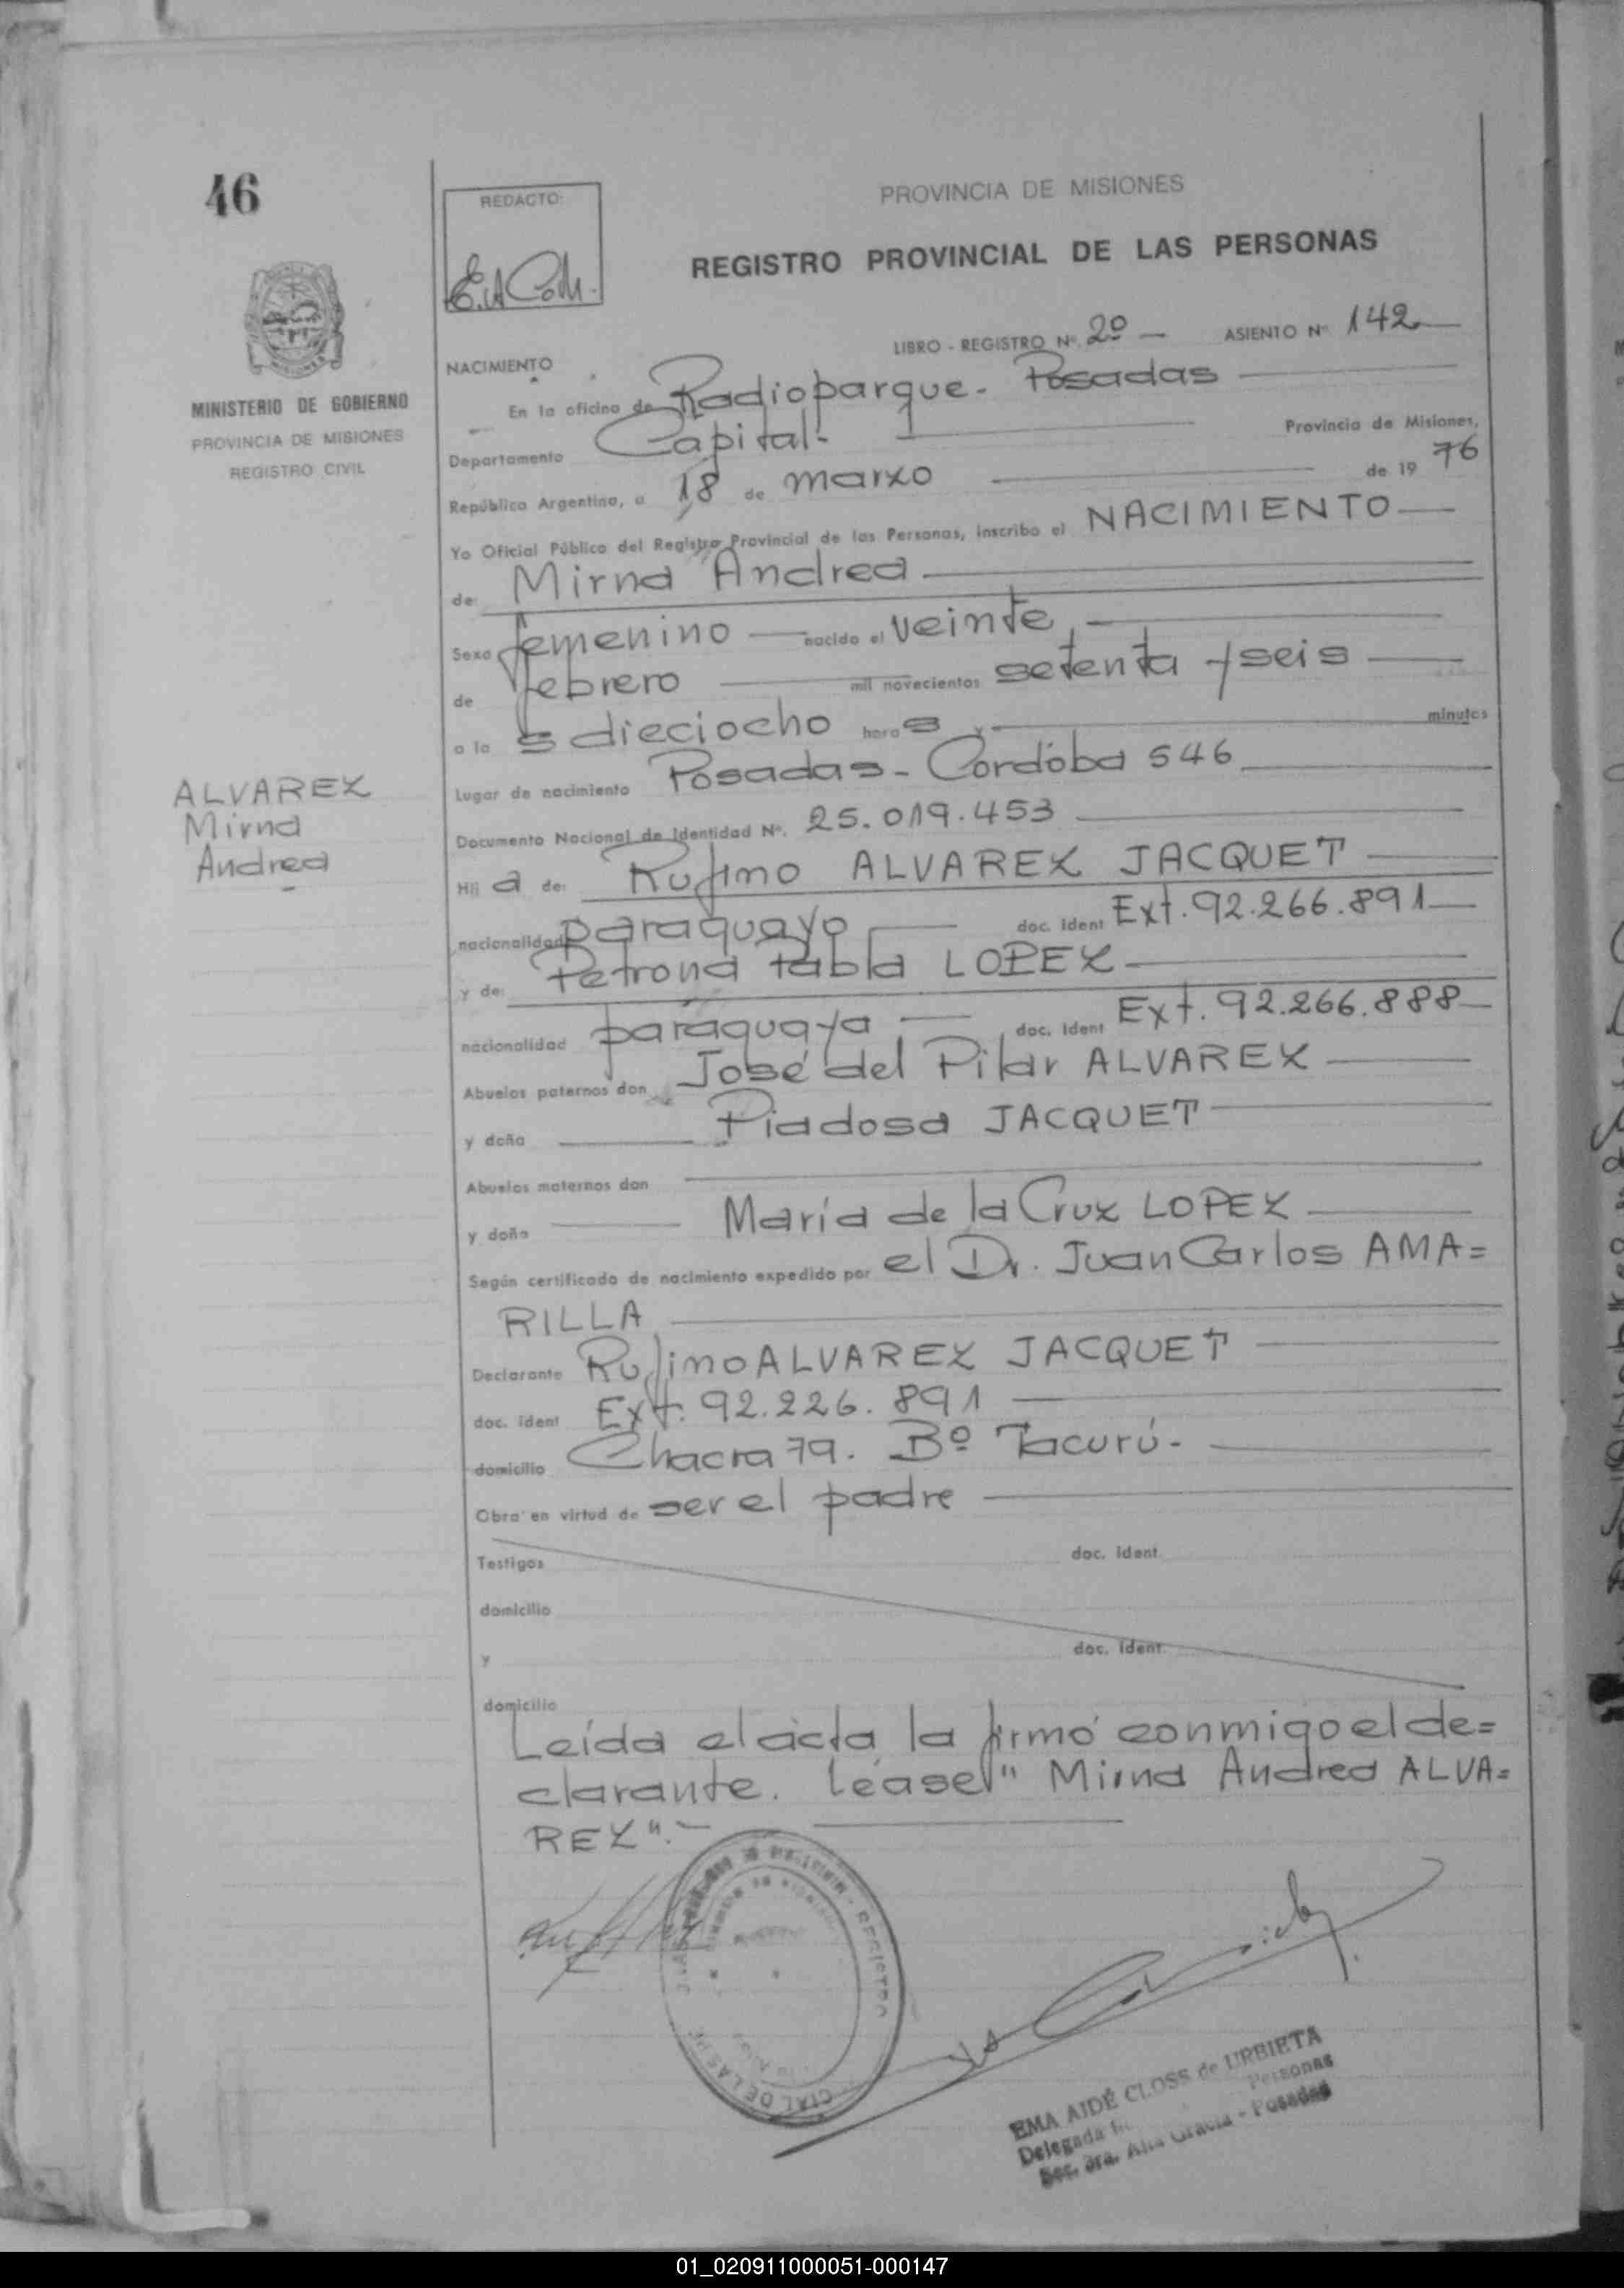 46
REDACTO:
E.A Coh.
PROVINCIA DE MISIONES
REGISTRO PROVINCIAL DE LAS PERSONAS
LIBRO - REGISTRO Nº. 2º — ASIENTO Nº 142
MINISTERIO DE GOBIERNO
PROVINCIA DE MISIONES
REGISTRO CIVIL
NACIMIENTO
En la oficina de Radioparque - Posadas
Departamento Capital - Provincia de Misiones,
República Argentina, a 18 de marzo de 19 76
Yo Oficial Público del Registro Provincial de las Personas, inscribo el NACIMIENTO
de: Mirna Andrea
Sexo femenino nacido el veinte
de febrero mil novecientos setenta y seis
a la s dieciocho hora s y minutos
Lugar de nacimiento Posadas - Córdoba 546
Documento Nacional de Identidad Nº. 25.019.453
ALVAREZ
Mirna
Andrea
Hij a de: Rufino ALVAREZ JACQUET
nacionalidad paraguayo doc. ident Ext. 92.266.891
y de: Petrona Pabla LOPEZ
nacionalidad paraguaya doc. ident Ext. 92.266.888
Abuelos paternos don José del Pilar ALVAREZ
y doña Piadosa JACQUET
Abuelos maternos don
y doña María de la Cruz LOPEZ
Según certificado de nacimiento expedido por el Dr. Juan Carlos AMA=
RILLA
Declarante Rufino ALVAREZ JACQUET
doc. ident Ext. 92.226.891
domicilio Chacra 79. Bº Tacurú-
Obra en virtud de ser el padre
Testigos doc. ident
domicilio
y doc. ident
domicilio
Leída el acta la firmó conmigo el de=
clarante. Léase "Mirna Andrea ALVA=
REZ".-
EMA AIDÉ CLOSS de URBIETA
Delegada Personas
Sec. 3ra. Alta Gracia - Posadas
01_020911000051-000147